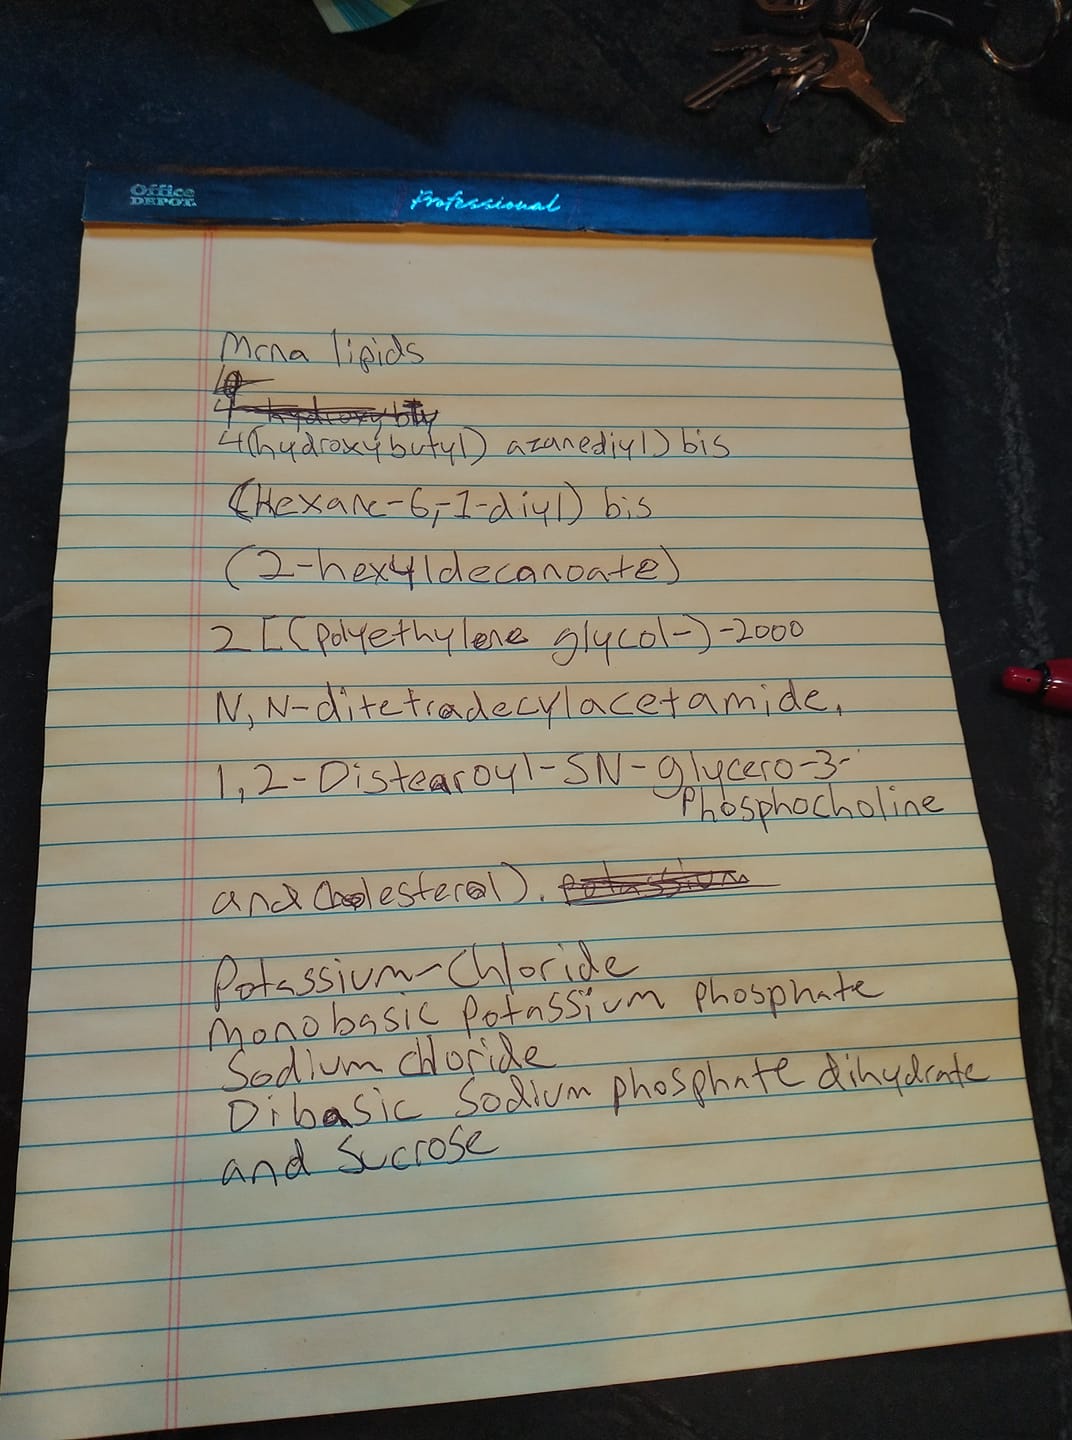 Office
DEPOT.
Professional
Mrna lipids
4(hydroxybutyl) azanediyl) bis
(Hexane-6,-1-diyl) bis
(2-hexyldecanoate)
2 [(polyethylene glycol-)-2000
N, N-ditetradecylacetamide,
1,2-Distearoyl-SN-glycero-3-
Phosphocholine
and Cholesterol).
Potassium-Chloride
Monobasic Potassium phosphate
Sodium chloride
Dibasic Sodium phosphate dihydrate
and Sucrose